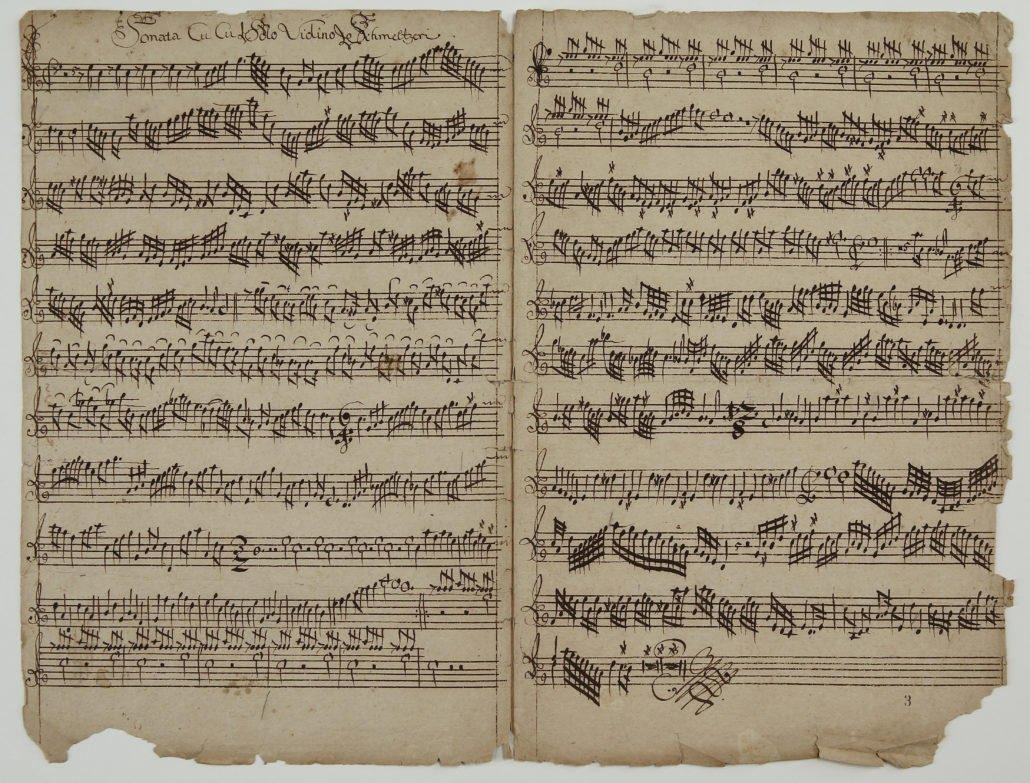 Sonata Cu Cu Solo Violino Schmeltzeri
3